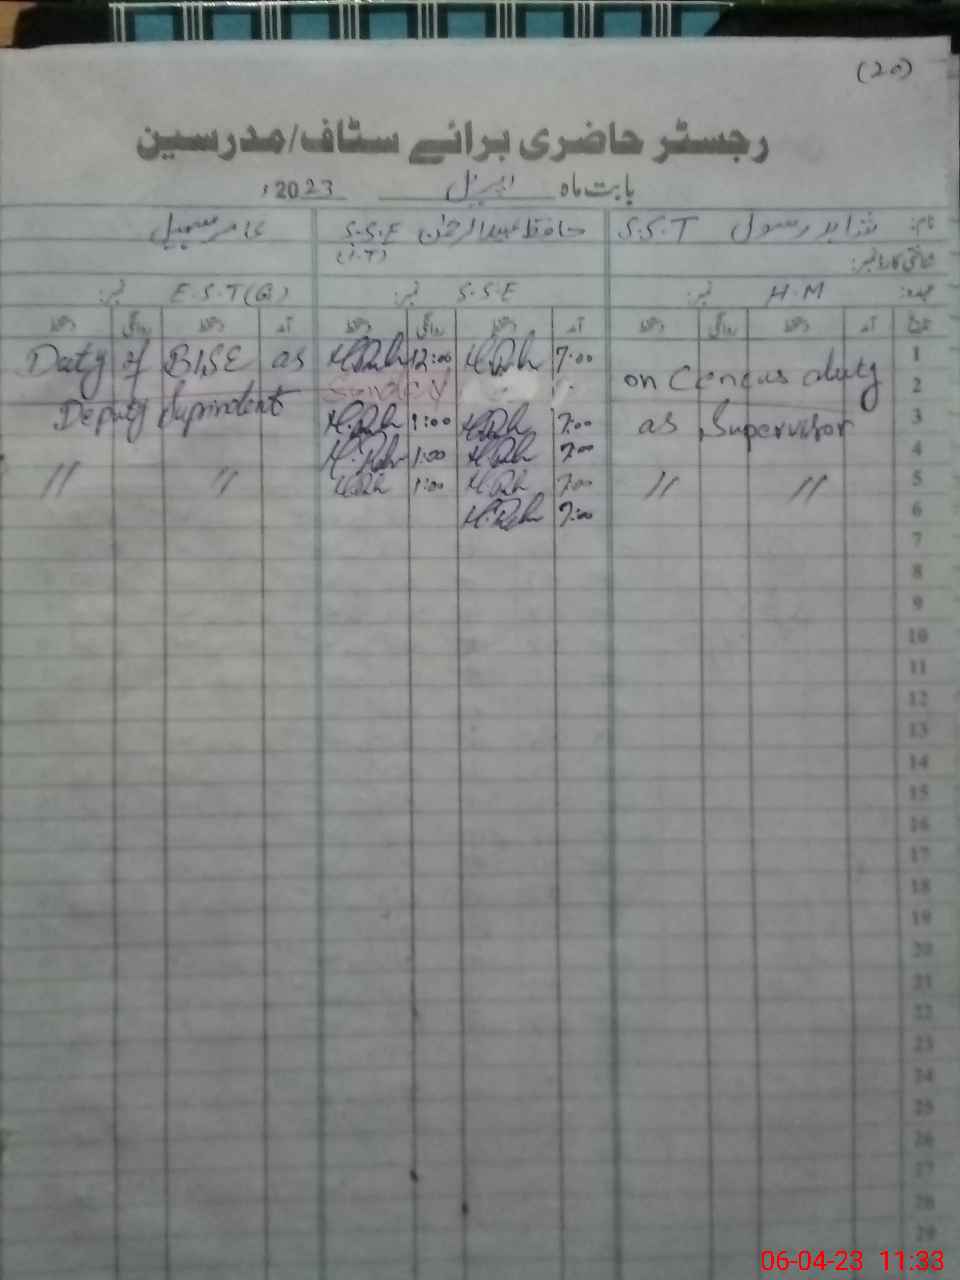 (20)
رجسٹر حاضری برائے سٹاف/مدرسین
بابت ماہ اپریل 2023ء
نام: شاہد رسول S.S.T حافظ عبدالرحمٰن S.S.E عامر سہیل
(I.T)
شناختی کارڈ نمبر:
عہدہ: H.M نمبر: S.S.E نمبر: E.S.T(G) نمبر:
تاریخ آمد دستخط روانگی دستخط آمد دستخط روانگی دستخط آمد دستخط روانگی دستخط
1 7:00 12:00 Duty of BISE as
2 on Census duty Sunday
3 as Supervisor 7:00 1:00 Deputy Suprindent
4 7:00 1:00
5 // // 7:00 1:00 // //
6 7:00
7
8
9
10
11
12
13
14
15
16
17
18
19
20
21
22
23
24
25
26
27
28
29
06-04-23 11:33